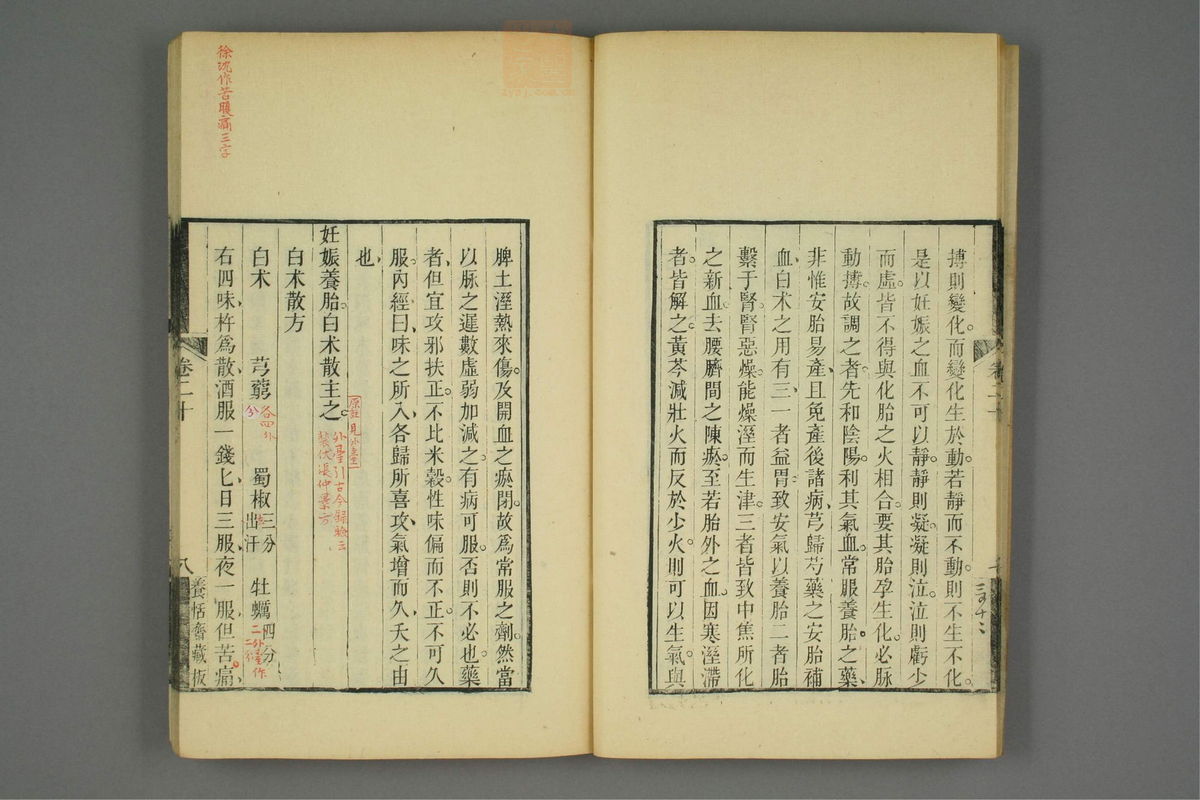 搏則變化而變化生於動若靜而不動則不生不化
是以妊娠之血不可以靜靜則凝凝則泣泣則虧少
而虛皆不得與化胎之火相合要其胎孕生化必脉
動摶故調之者先和陰陽利其氣血常服養胎之藥
非惟安胎易產且免產後諸病芎歸芍藥之安胎補
血白术之用有三一者益胃致安氣以養胎二者胎
繫于腎腎惡燥能燥溼而生津三者皆致中焦所化
之新血去腰臍間之陳瘀至若胎外之血因寒溼滯
者皆解之黃芩減壯火而反於少火則可以生氣與
脾土溼熱來傷及開血之瘀閉故爲常服之劑然當
以脉之遲數虛弱加減之有病可服否則不必也藥
者但宜攻邪扶正不比米穀性味偏而不正不可久
服內經曰味之所入各歸所喜攻氣增而久夭之由
也
妊娠養胎白术散主之
原註見外臺
外臺引古今錄驗云
裴伏張仲景方
白术散方
白术 芎藭 各四分 蜀椒 三分出汗 牡蠣 四分
二外臺作二分
右四味杵爲散酒服一錢匕日三服夜一服但苦痛
卷二十
八
養恬齋藏板
徐沈作苦腹痛三字